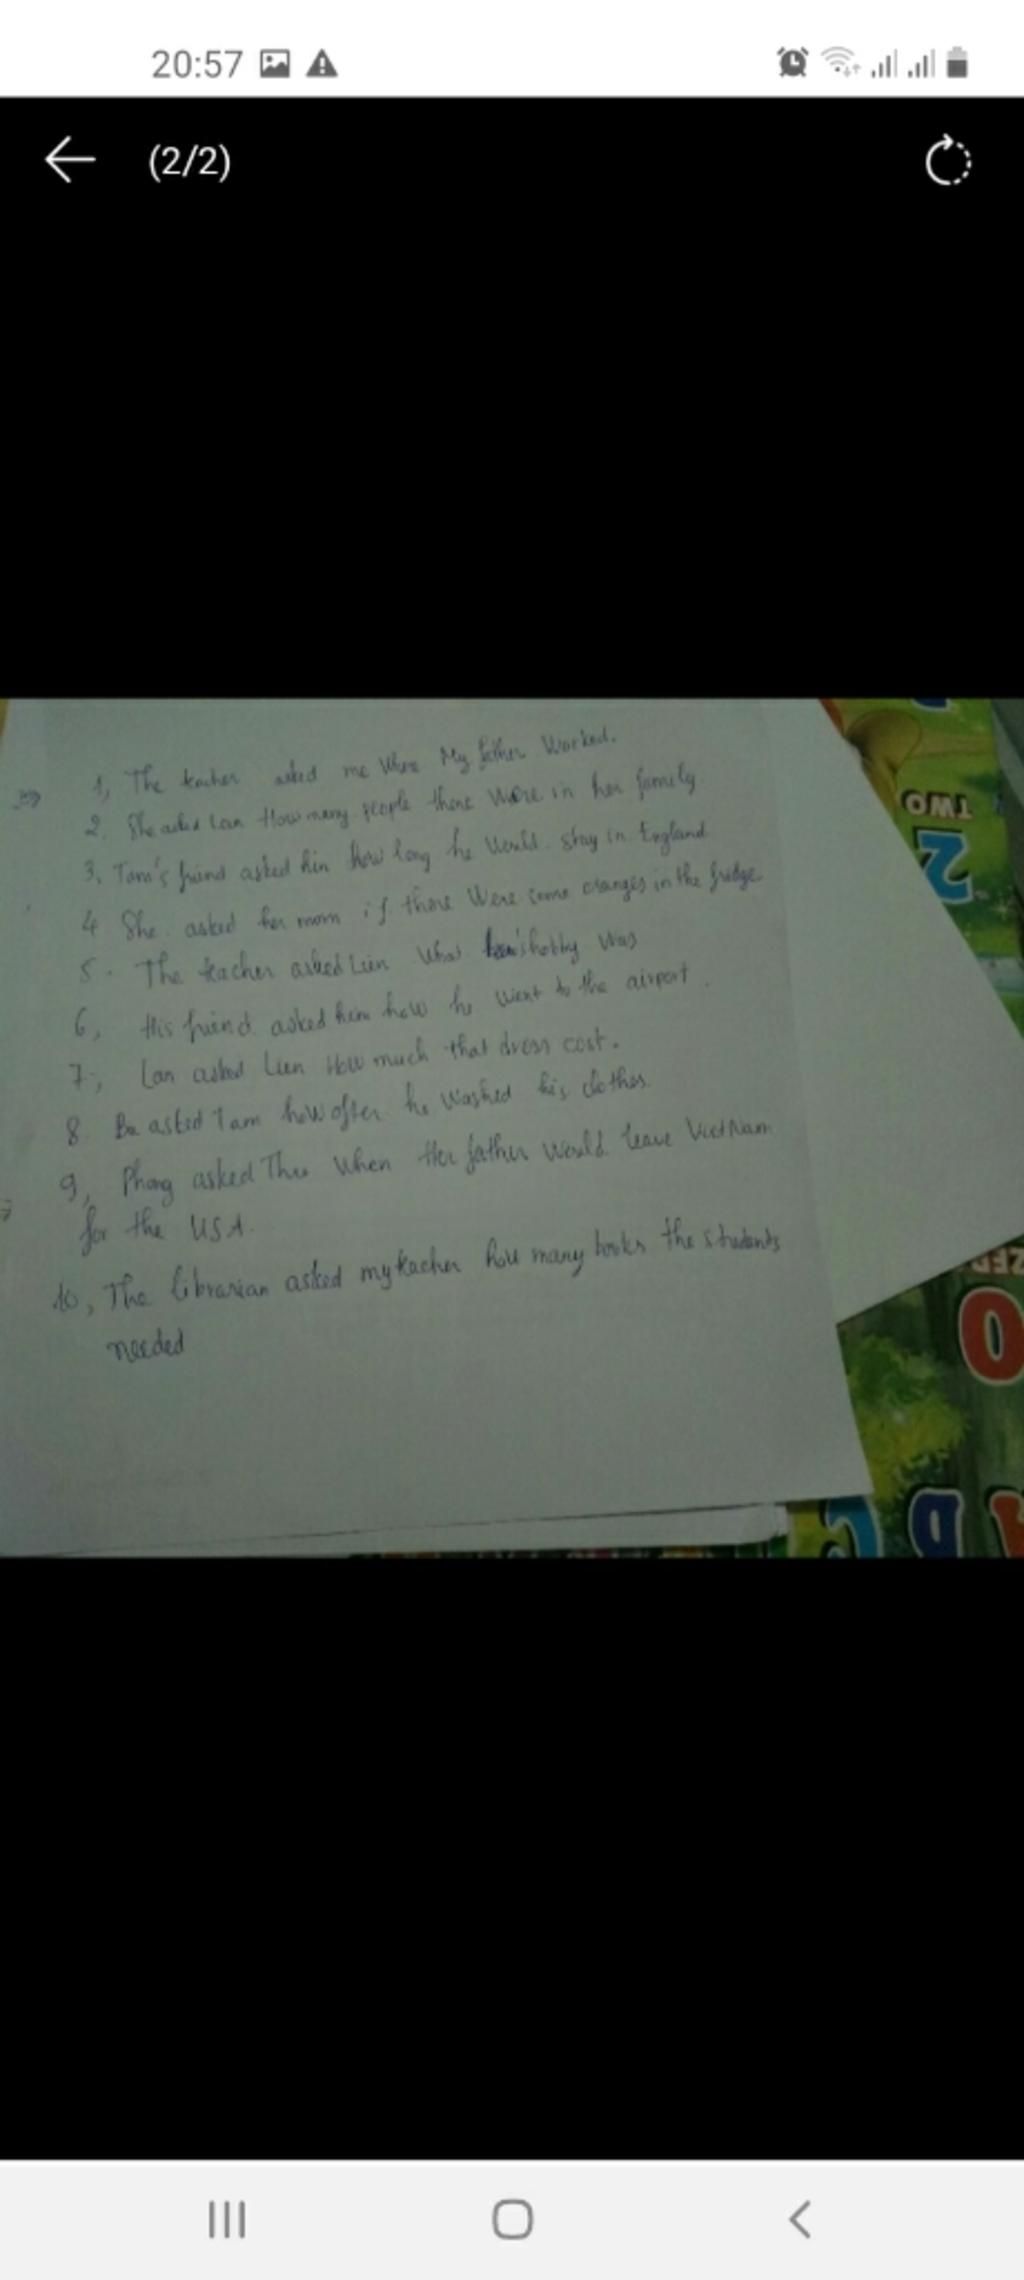 20:57
(2/2)
1, The teacher asked me where My father Worked.
2. She asked Lan How many people there Were in her family
3, Tam's friend asked him how long he Would stay in England
4 She asked her mom if there Were some oranges in the fridge
5. The teacher asked Lien What hobby Was
6, His friend asked him how he went to the airport.
7, Lan asked Lien How much that dress cost.
8 Ba asked Tam how often he Washed his clothes.
9, Phong asked Thu When Her father Would leave Viet Nam
for the USA.
10, The librarian asked my teacher how many books the students
needed
TWO
2
0